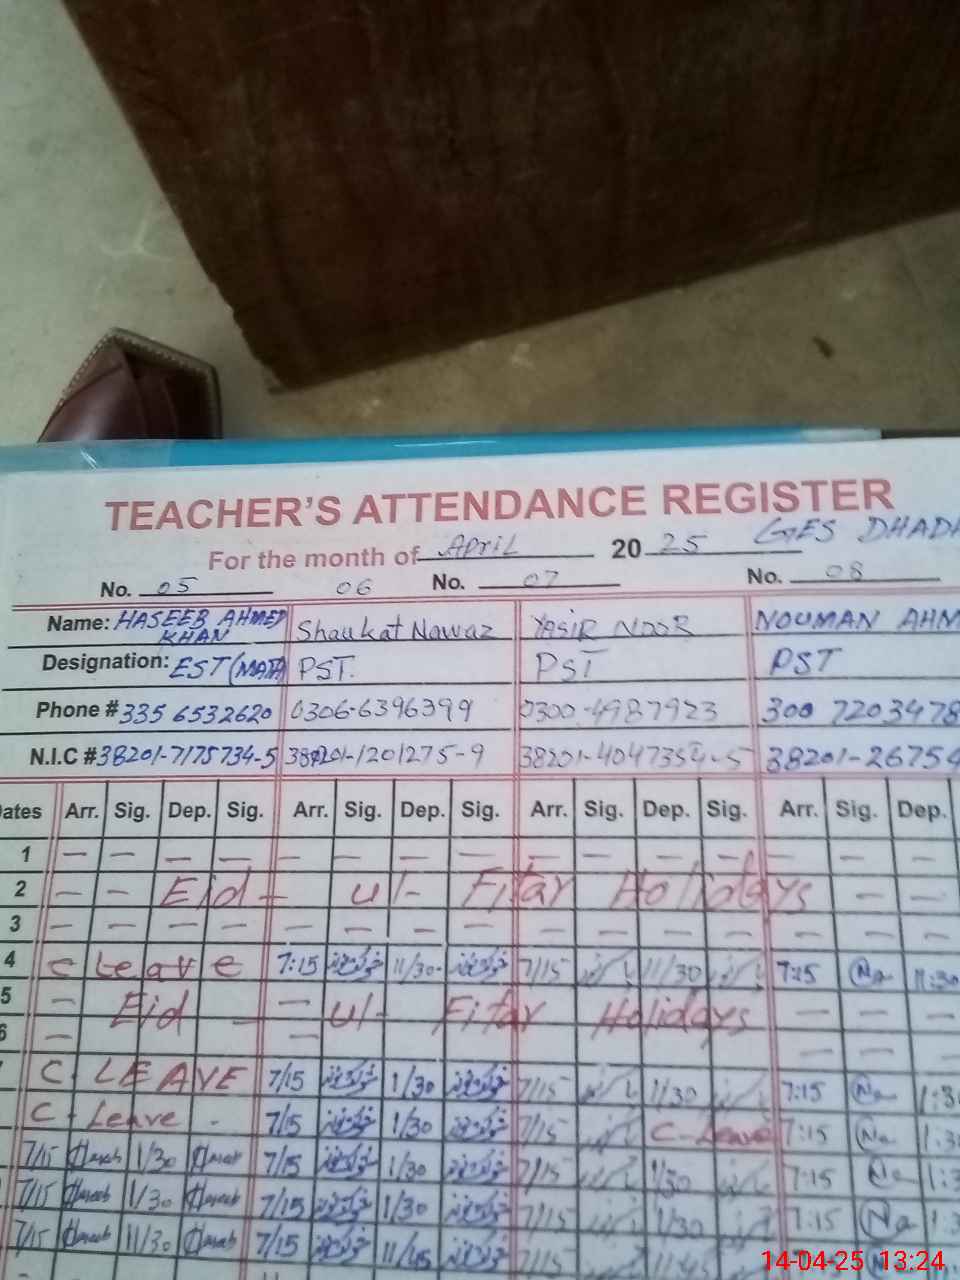 TEACHER'S ATTENDANCE REGISTER
For the month of April 2025 GES DHAD
No. 05 06 No. 07 No. 08
Name: HASEEB AHMED KHAN Shaukat Nawaz YASIR NOOR NOUMAN AHM
Designation: EST (MATH) PST. PST PST
Phone # 335 6532620 0306-6396399 0300-4987923 300 7203478
N.I.C # 38201-7175734-5 38201-1201275-9 38201-4047354-5 38201-26754
Dates Arr. Sig. Dep. Sig. Arr. Sig. Dep. Sig. Arr. Sig. Dep. Sig. Arr. Sig. Dep.
1 — — — — — — — — — — — — — — —
2 — — Eid - ul - Fitar Holidays — —
3 — — — — — — — — — — — — — — —
4 C Leave 7:15 11/30 7/15 11/30 7:15 Na 11:30
5 — Eid — ul - Fitar Holidays — —
6 — — — — —
C. LEAVE 7/15 1/30 7/15 1/30 7:15 Na 1:3
C. Leave - 7/15 1/30 7/15 C-Leave 7:15 Na 1:3
7/15 Haseeb 1/30 Haseeb 7/15 1/30 7/15 1/30 7:15 Na 1:3
7/15 Haseeb 1/30 Haseeb 7/15 1/30 7/15 1/30 7:15 Na 1:3
7/15 Haseeb 11/30 Haseeb 7/15 11/45 7/15 11/45
14-04-25 13:24